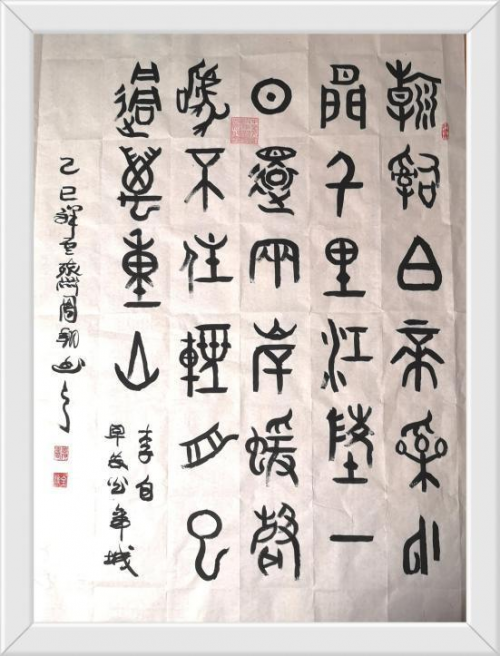 朝辭白帝采云
間千里江陵一
日還兩岸猨聲
啼不住輕舟已
過萬重山
李白
早发白帝城
乙巳